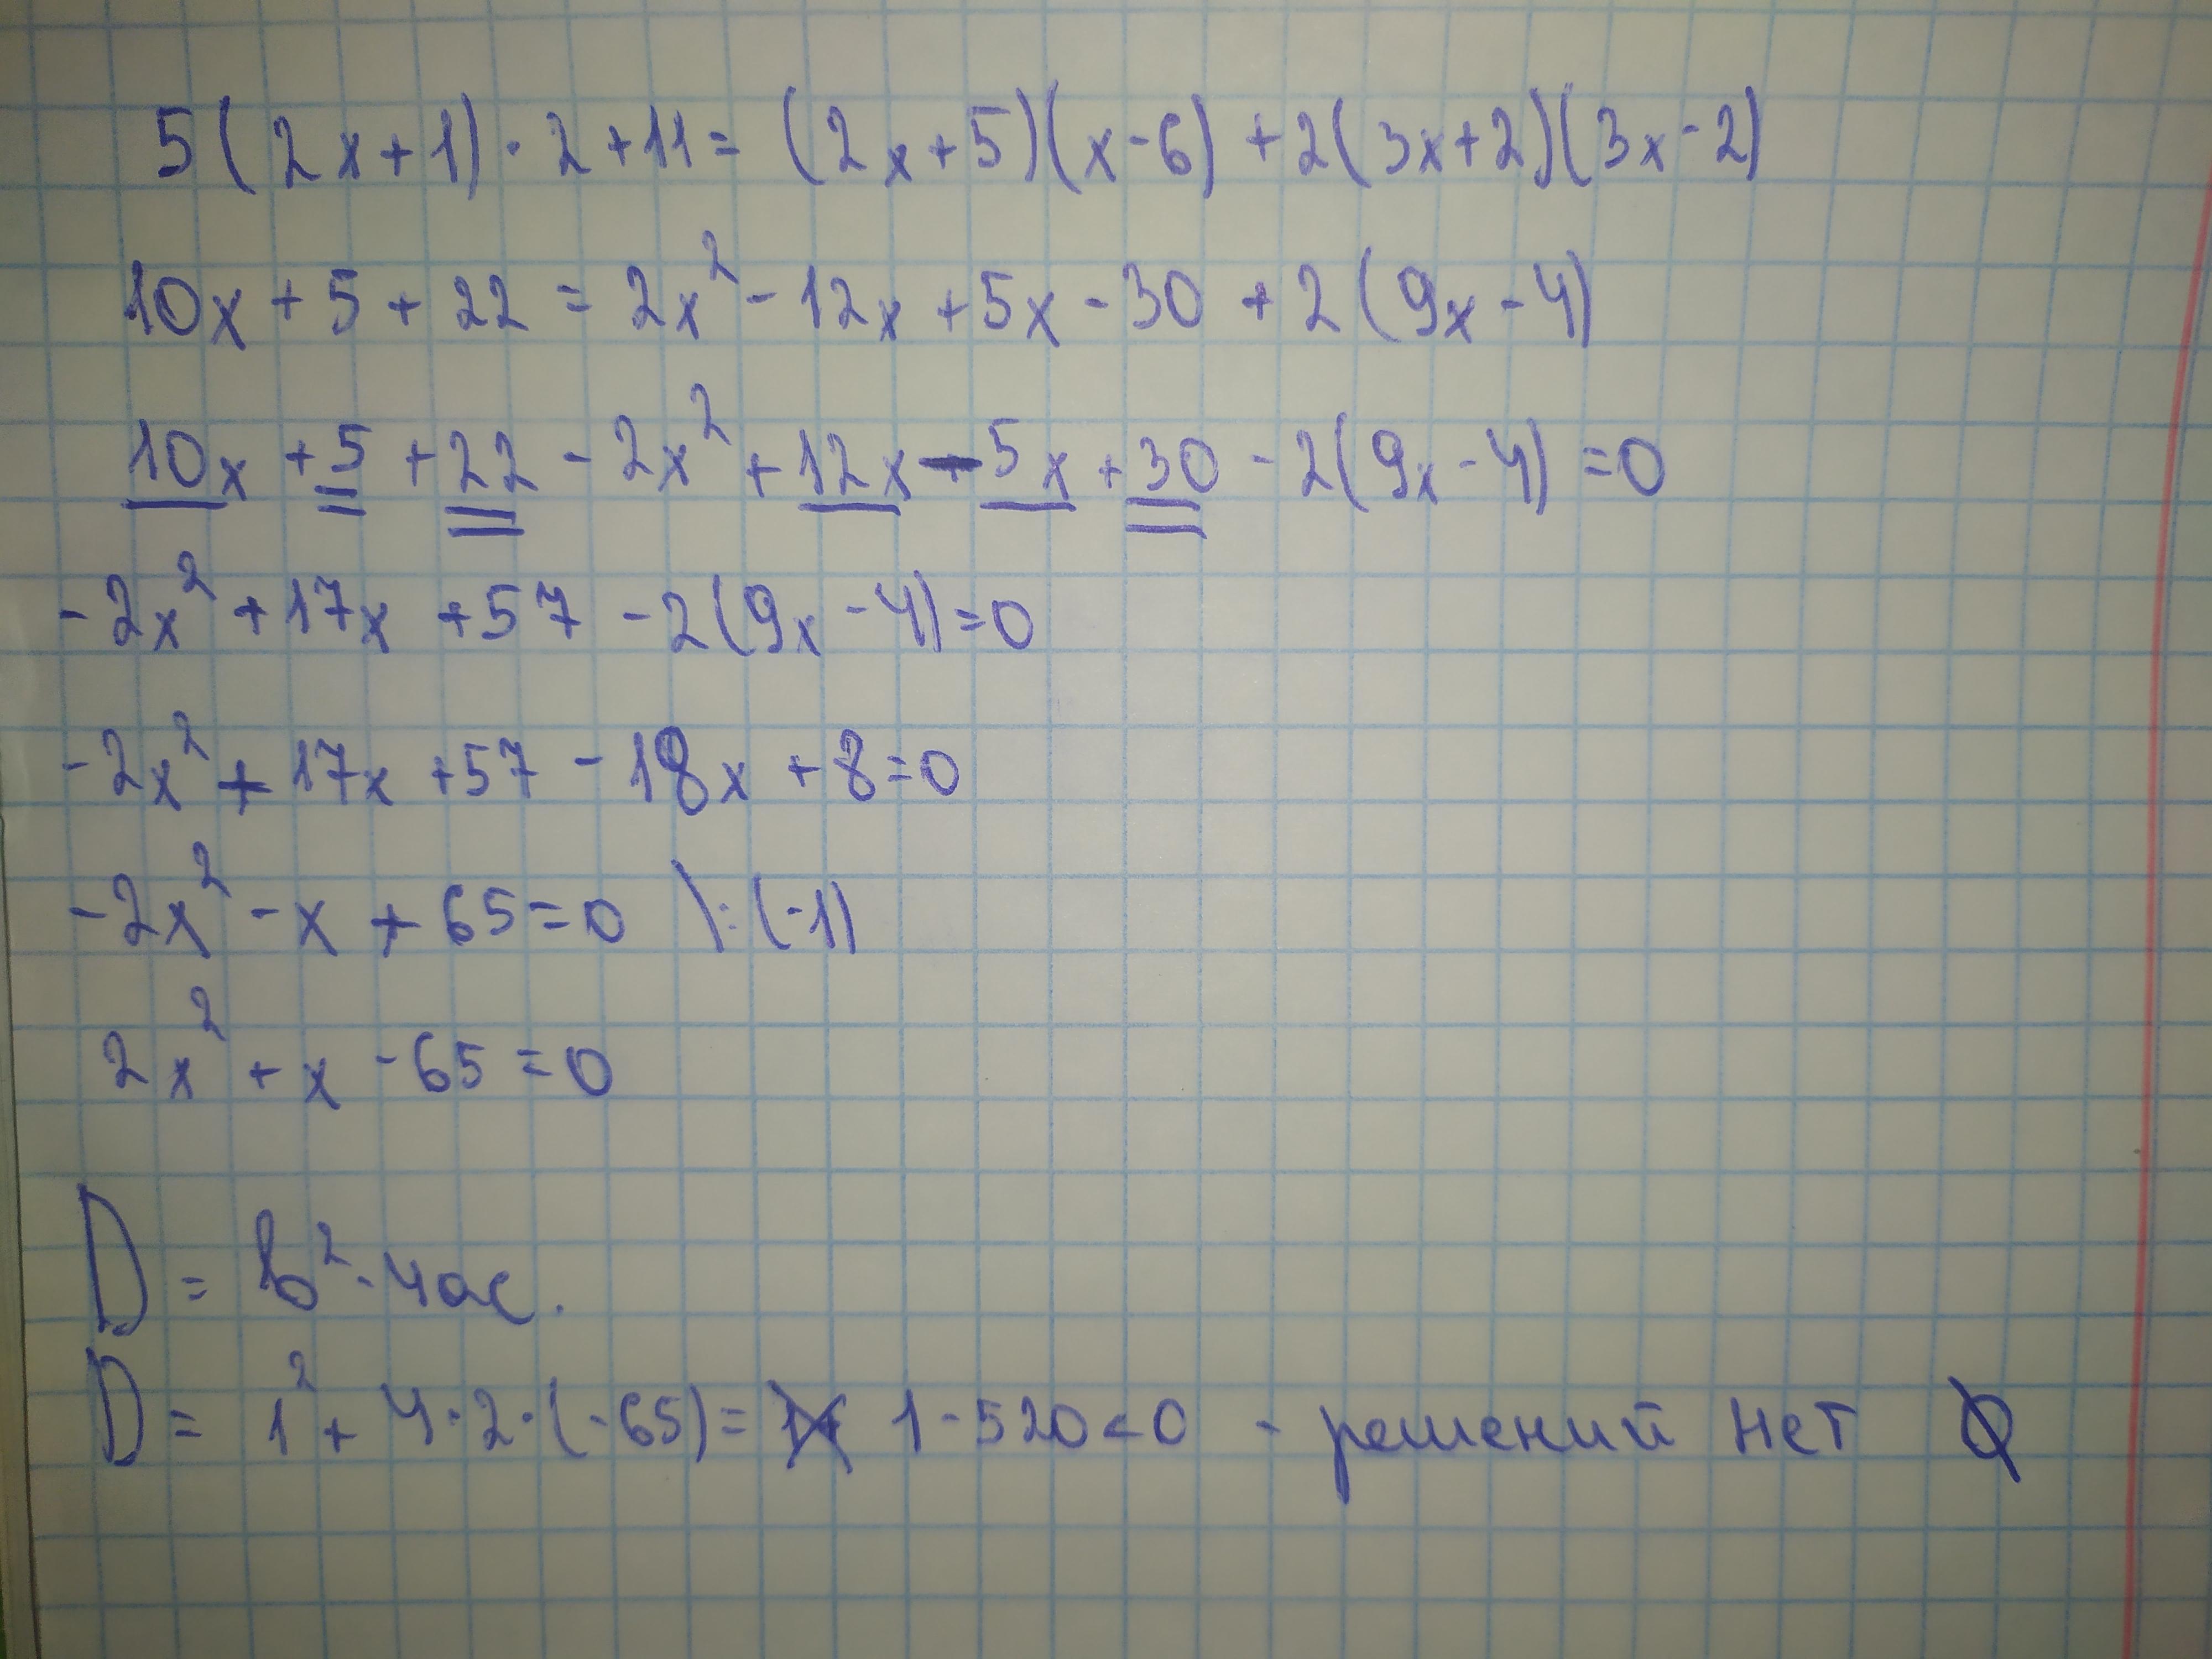 5(2x+1)·2+11=(2x+5)(x-6)+2(3x+2)(3x-2)
10x+5+22=2x²-12x+5x-30+2(9x-4)
10x+5+22-2x²+12x-5x+30-2(9x-4)=0
-2x²+17x+57-2(9x-4)=0
-2x²+17x+57-18x+8=0
-2x²-x+65=0 \:(-1)
2x²+x-65=0
D=b²-4ac.
D=1²+4·2·(-65)= 1-520<0 - решений нет ∅